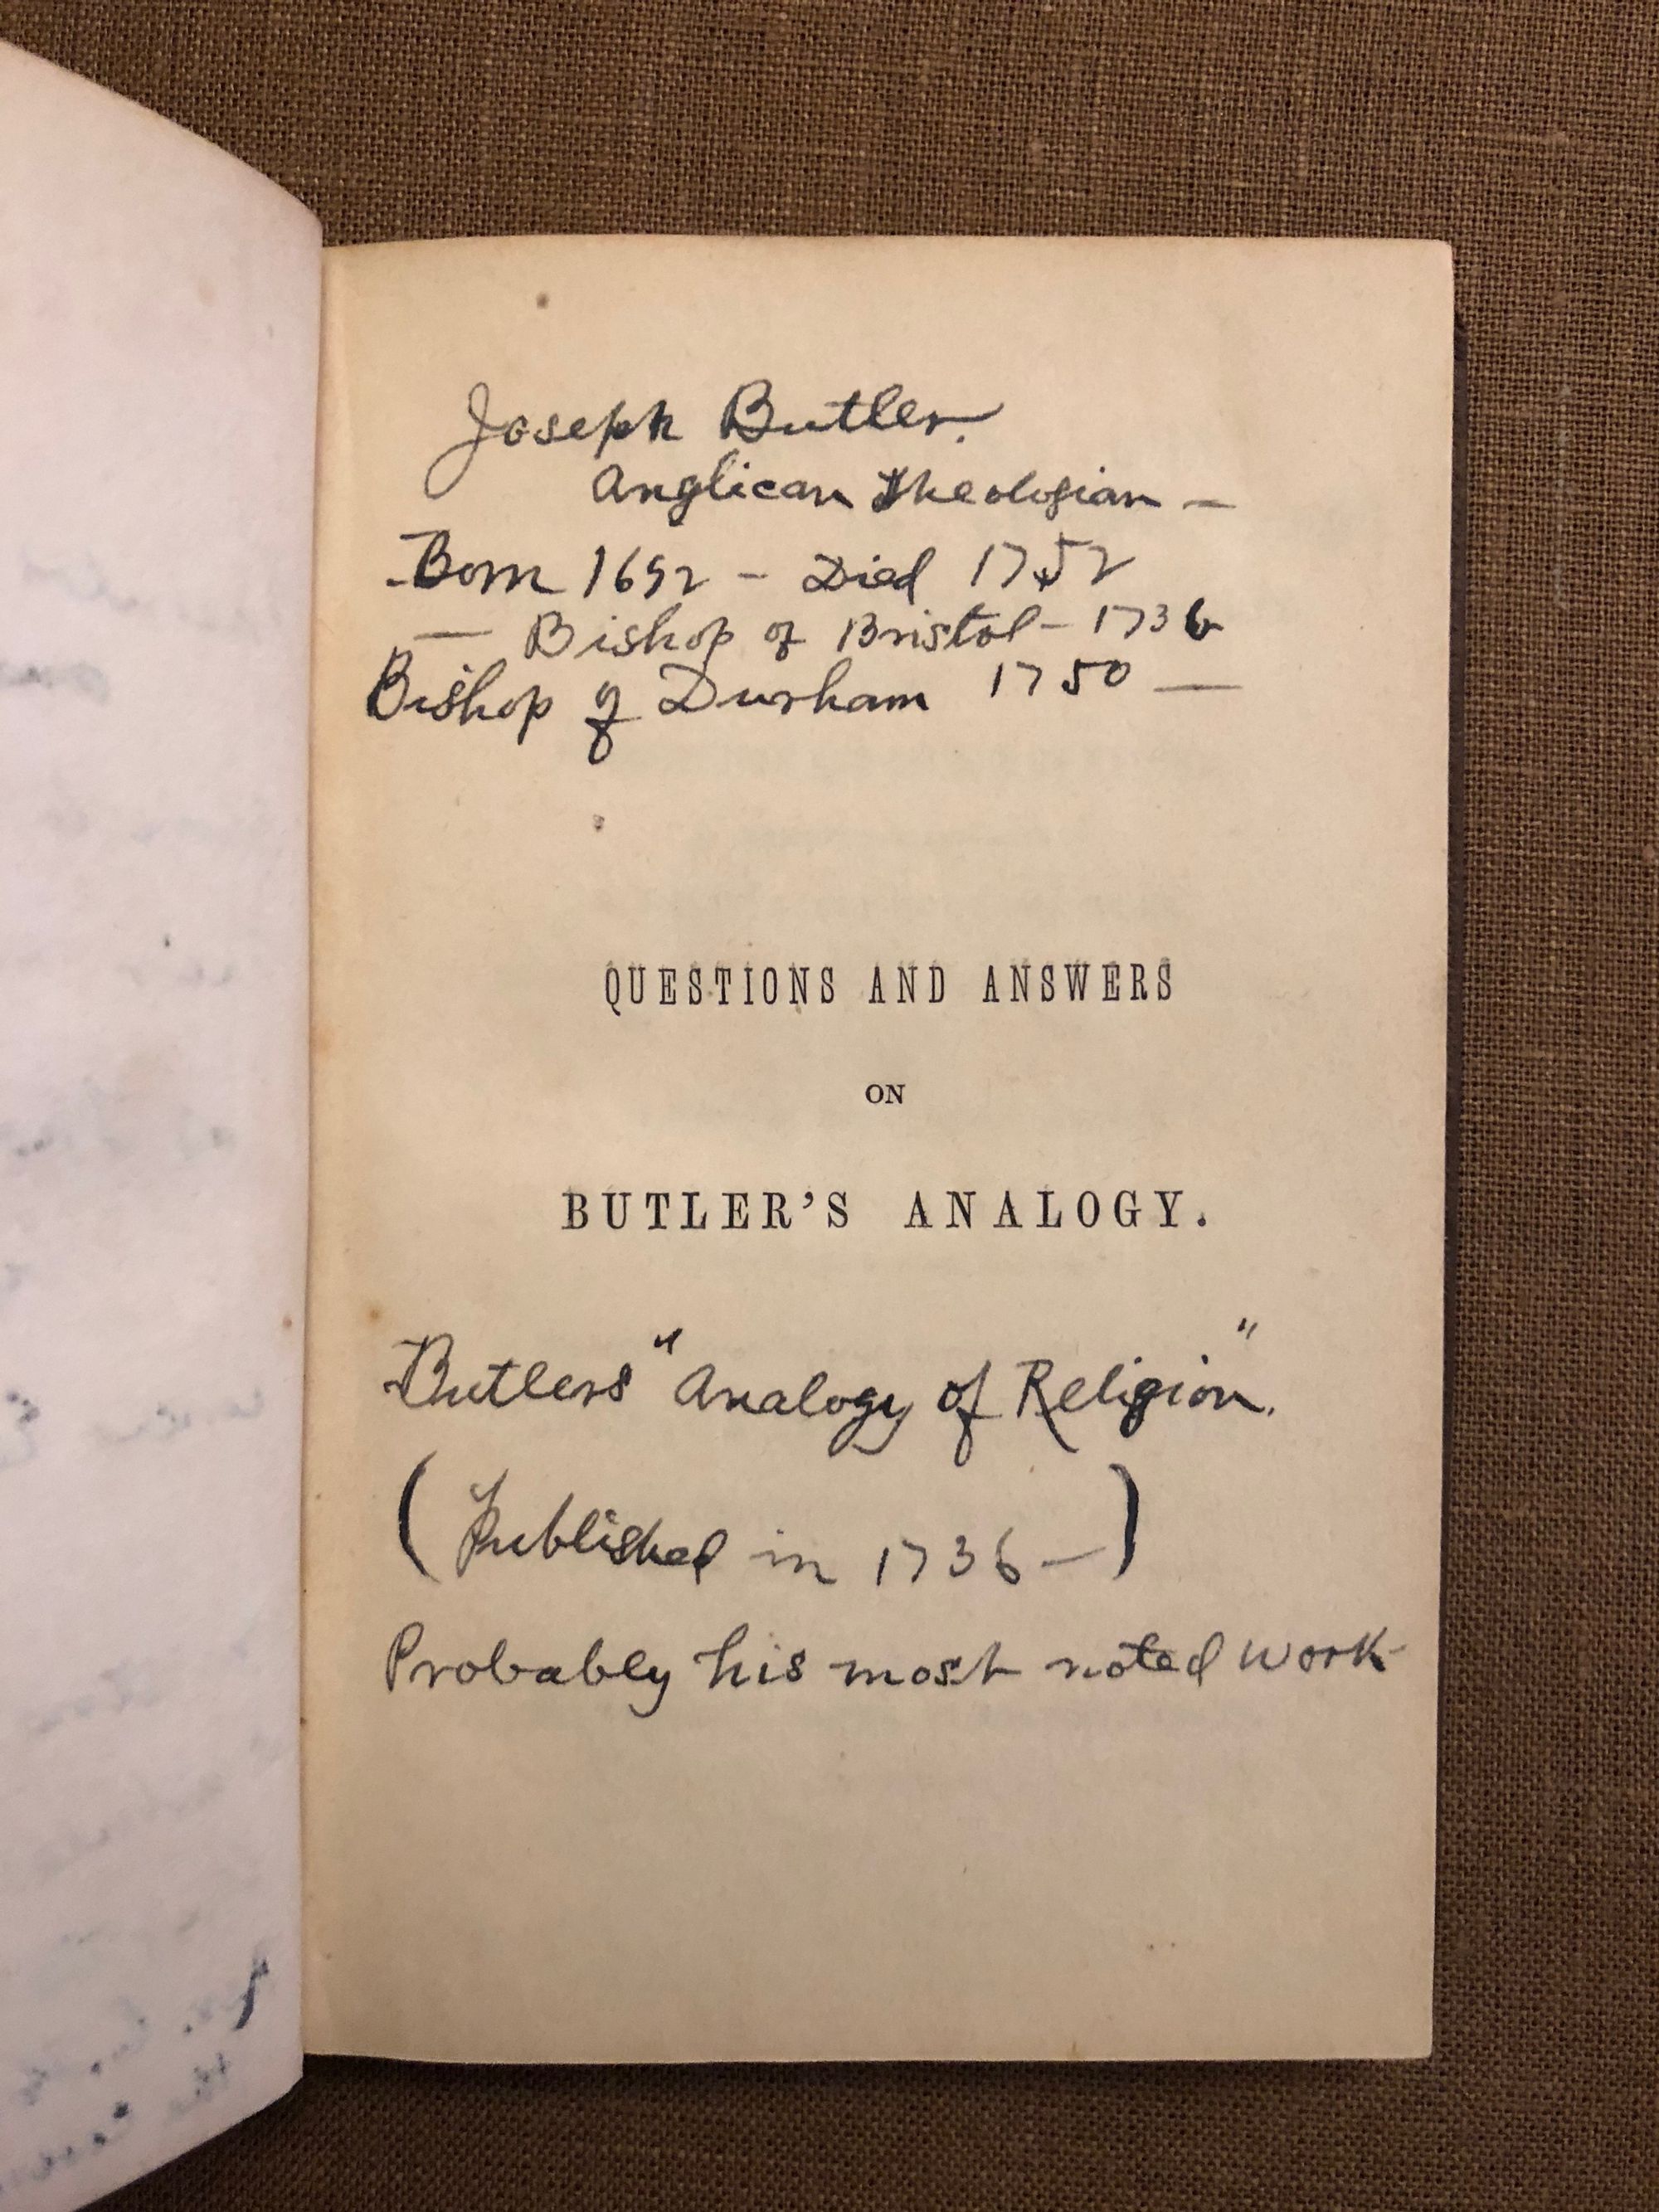 Joseph Butler.
Anglican Theologian —
Born 1692 - Died 1752
— Bishop of Bristol - 1736
Bishop of Durham 1750 —
QUESTIONS AND ANSWERS
ON
BUTLER'S ANALOGY.
Butlers "Analogy of Religion".
(Published in 1736 —)
Probably his most noted work